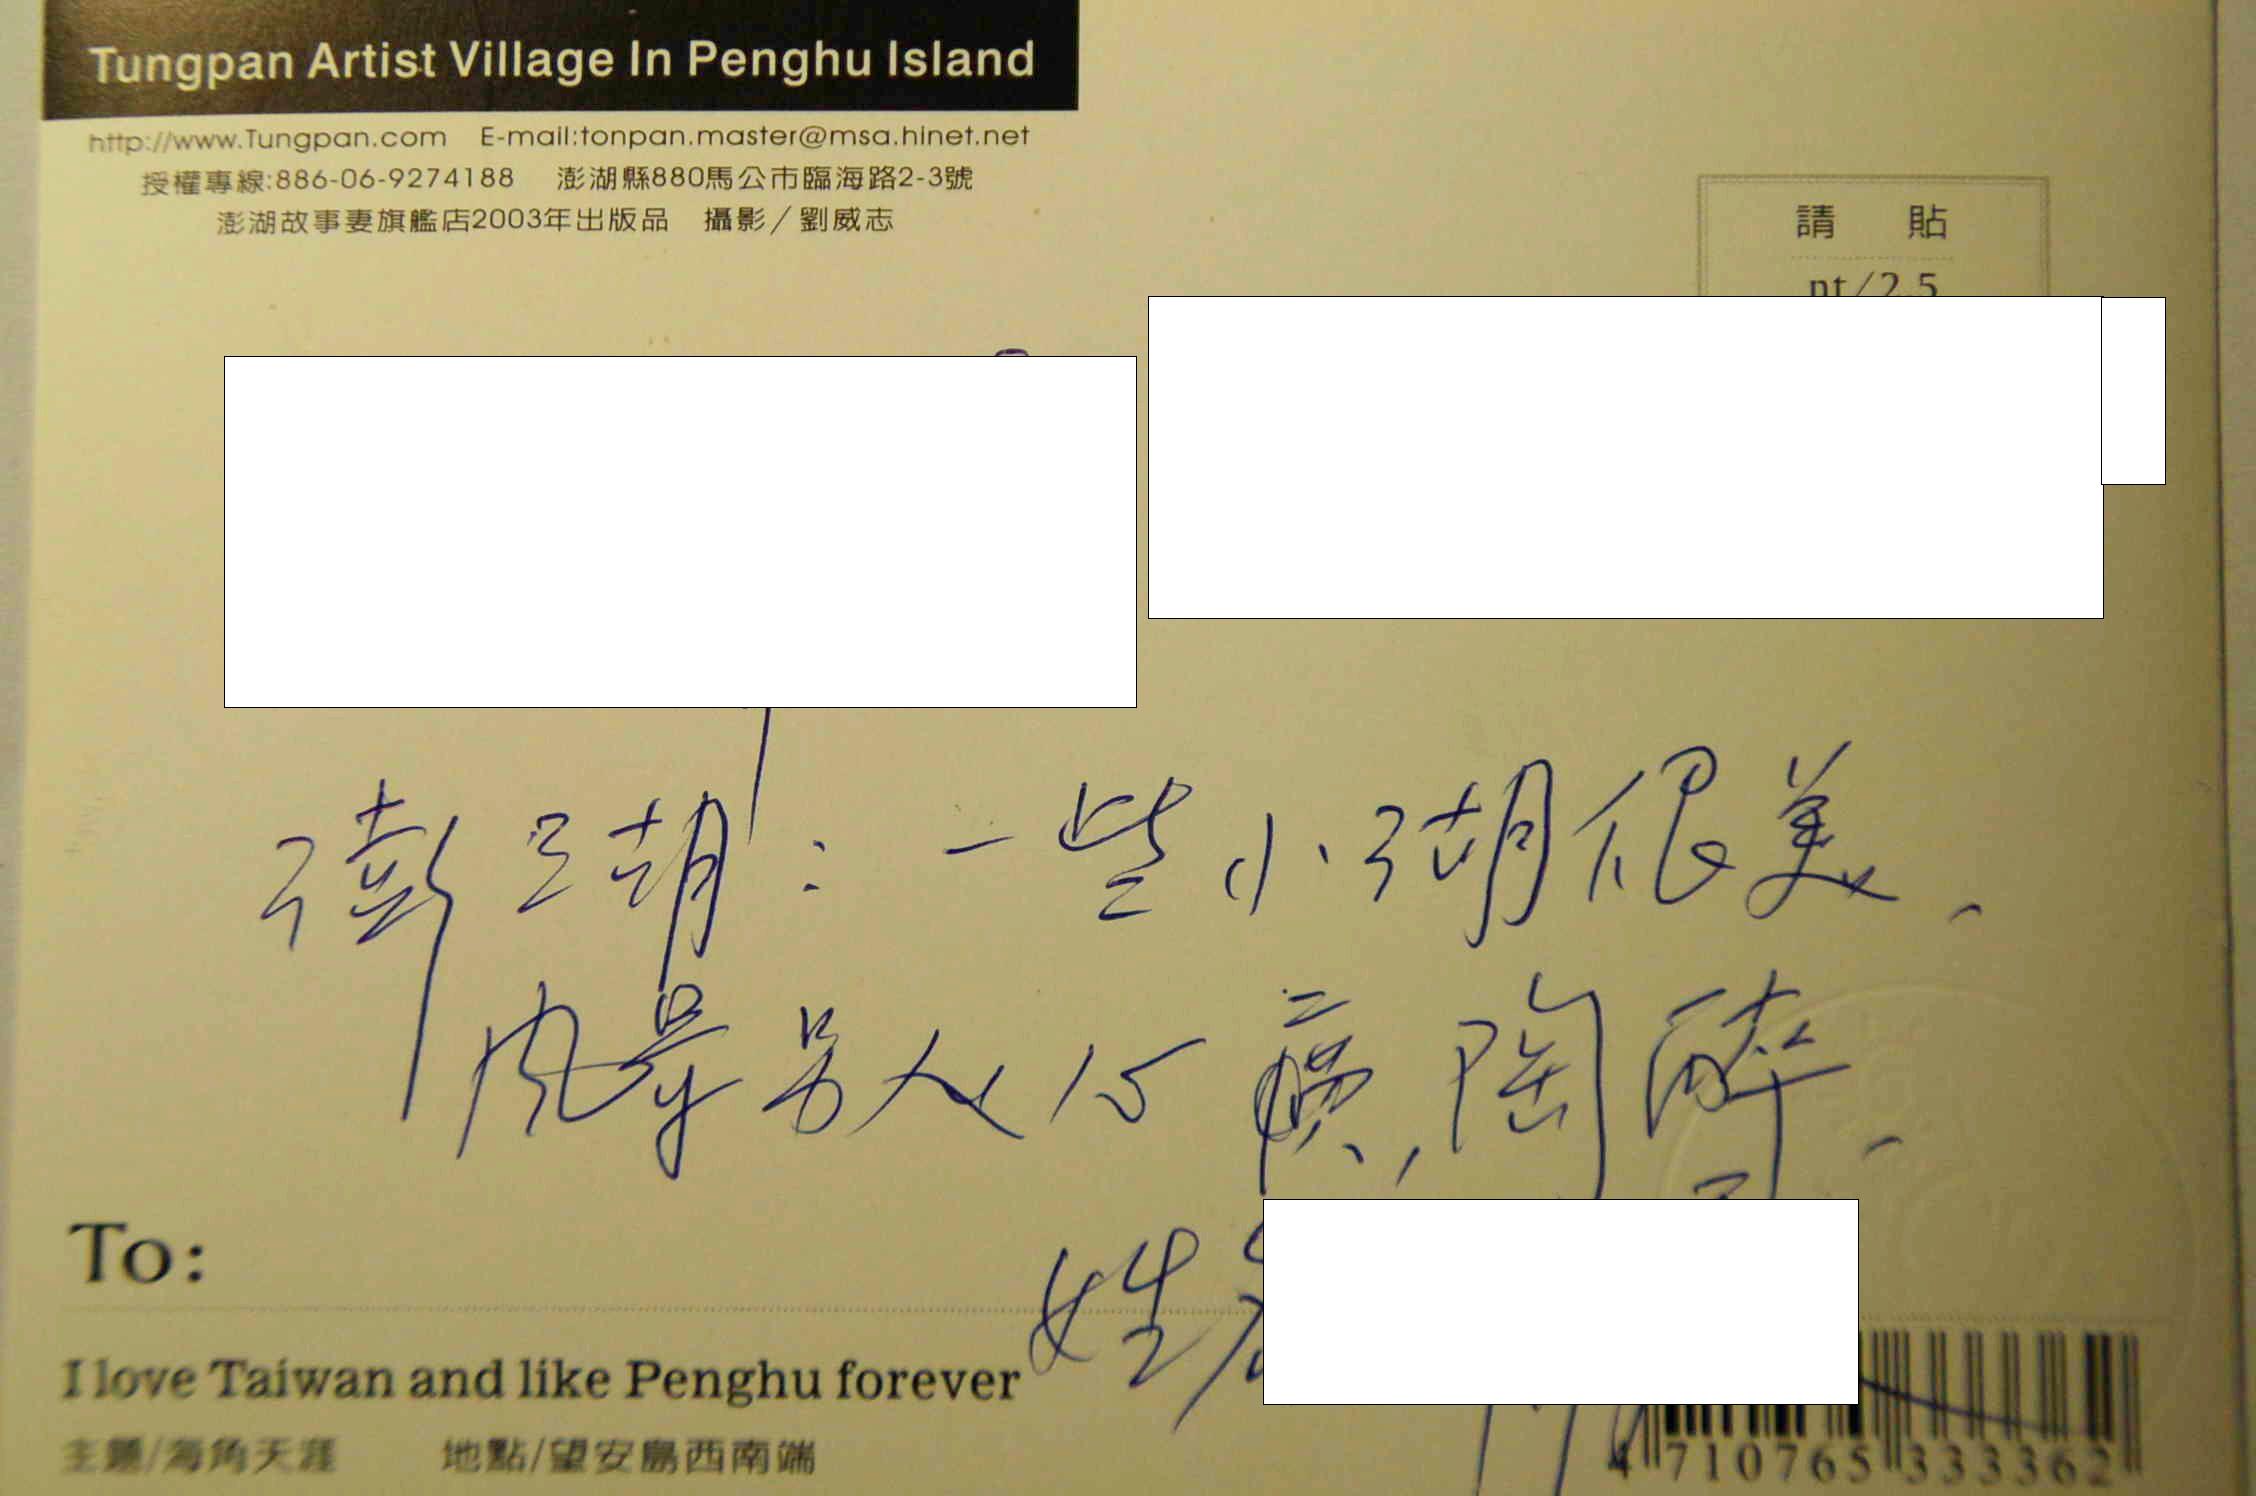 Tungpan Artist Village In Penghu Island
http://www.Tungpan.com E-mail:tonpan.master@msa.hinet.net
授權專線:886-06-9274188 澎湖縣880馬公市臨海路2-3號
澎湖故事妻旗艦店2003年出版品 攝影／劉威志
請 貼
nt/2.5
澎湖：一些小湖很美、
風景另人心曠,陶醉、
To:
姓
I love Taiwan and like Penghu forever
主題/海角天涯 地點/望安島西南端
4 710765 333362